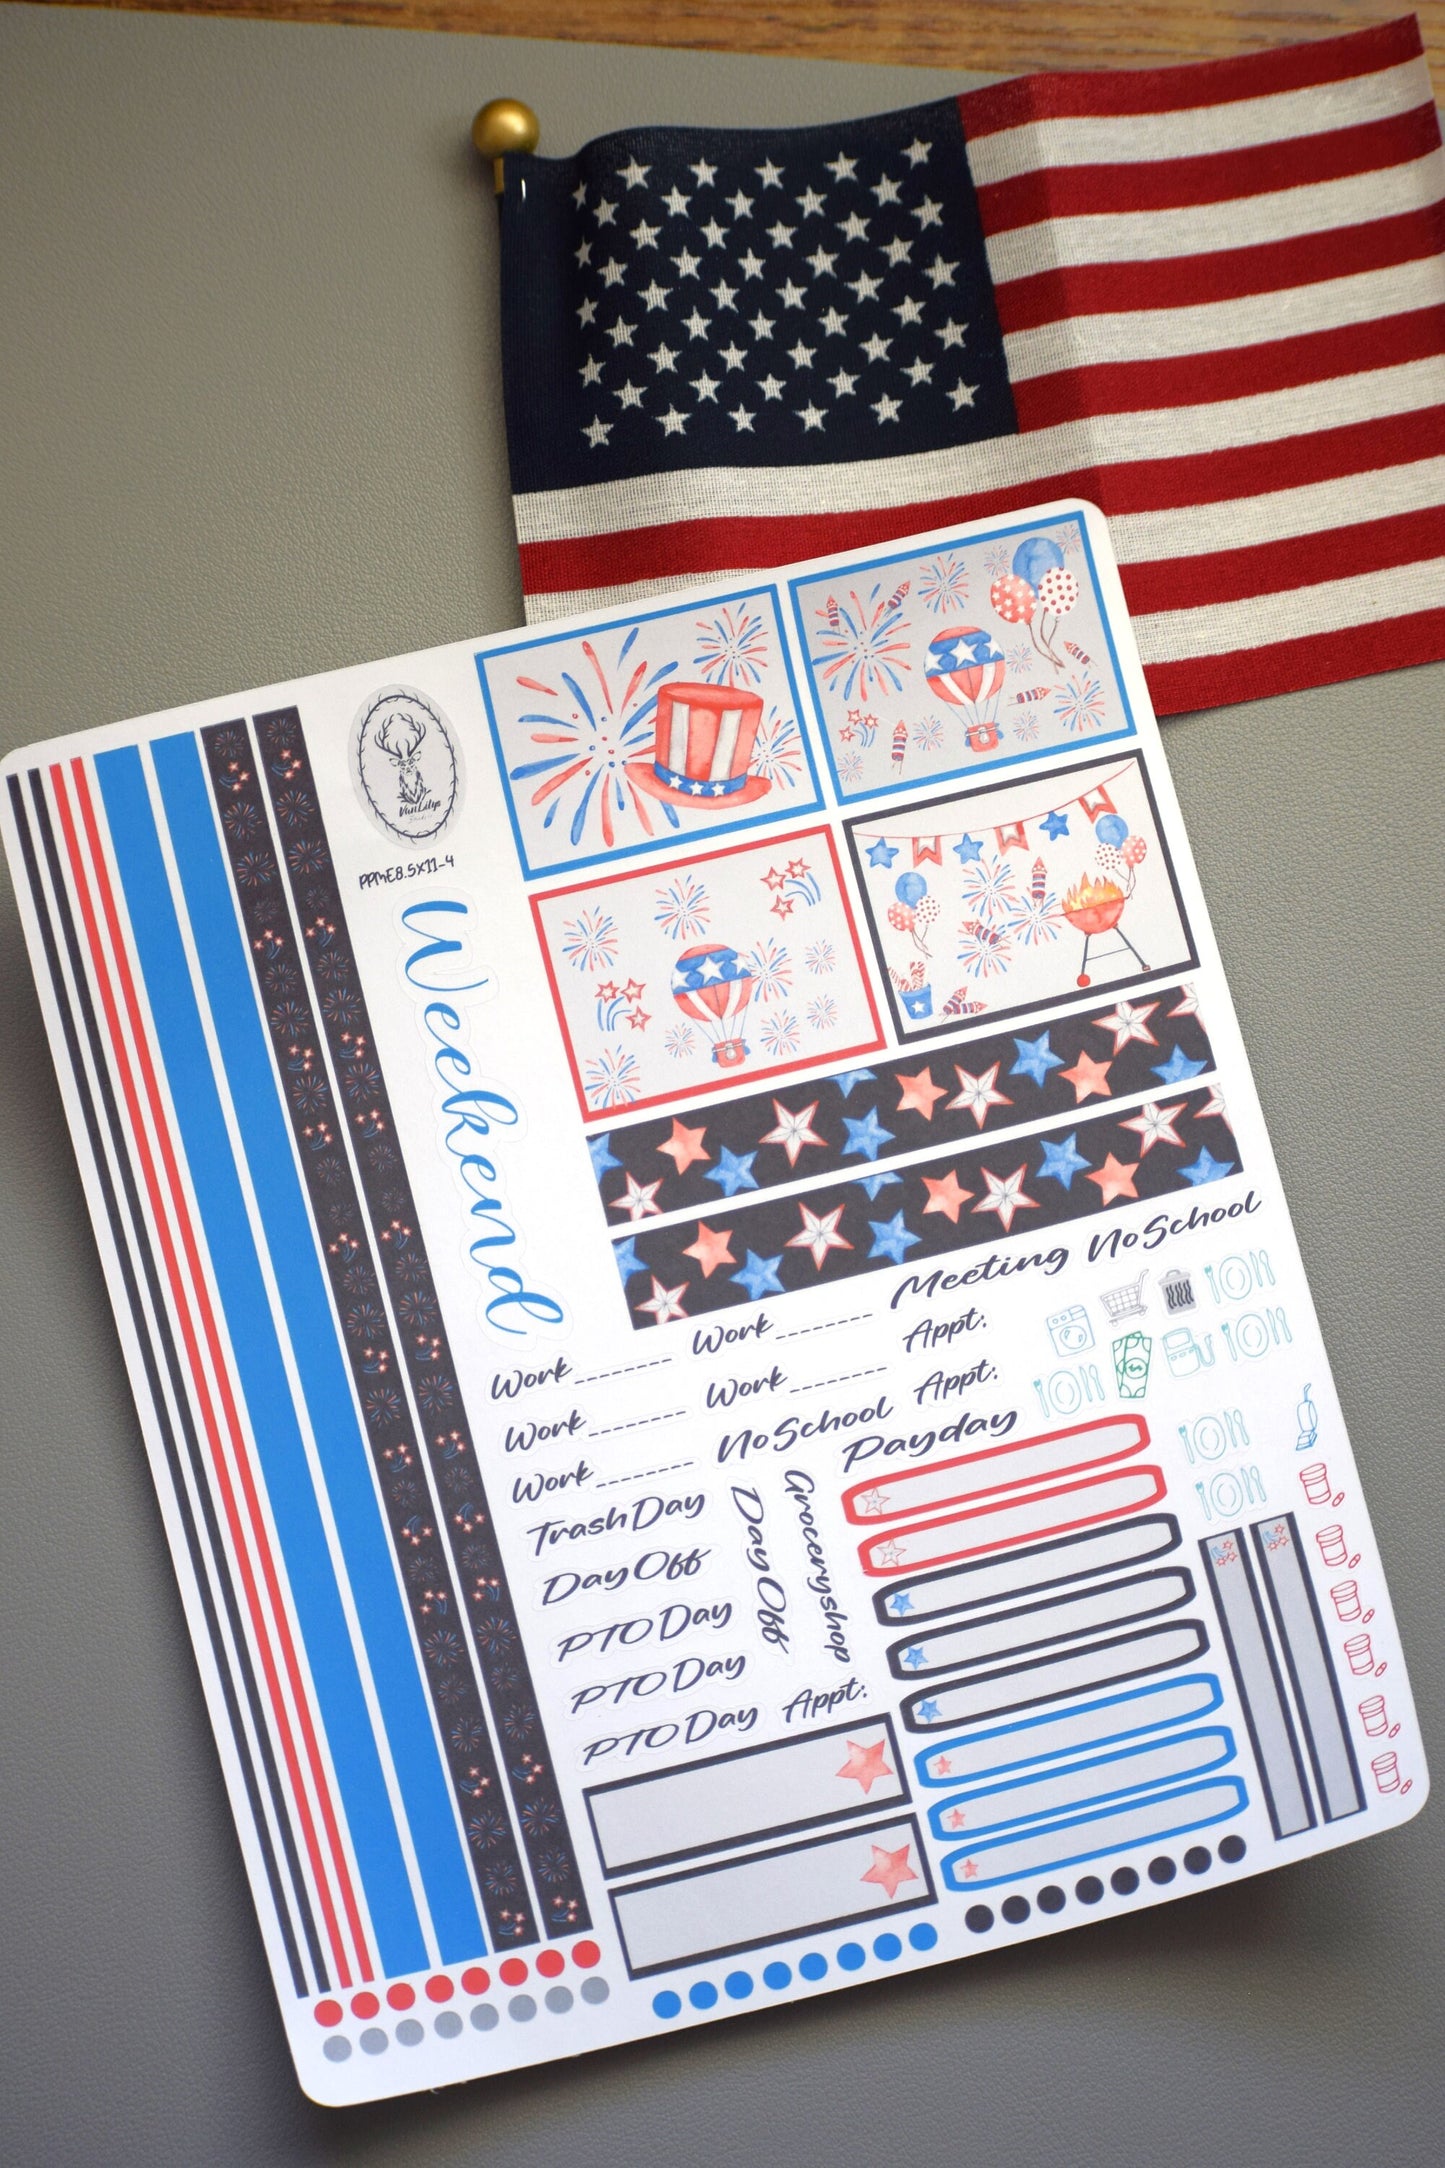 VanLilys
Studio
PPME8.5X11_4
Weekend
Meeting
No School
Work_______
Work_______
Appt:
Work_______
Work_______
Appt:
Work_______
No School
Payday
Trash Day
Day Off
Groceryshop
Day Off
PTO Day
PTO Day
PTO Day
Appt: